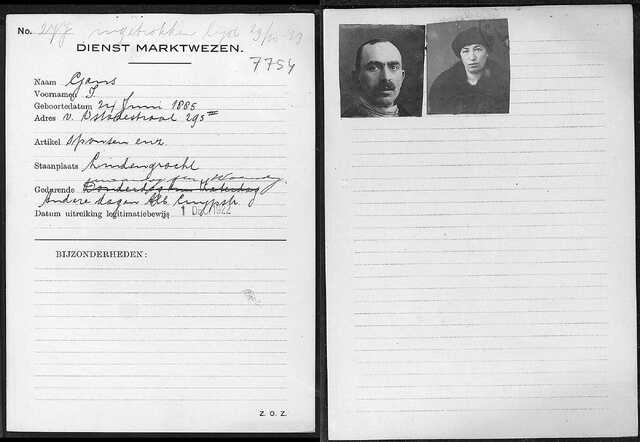 No. 247 ingetrokken
DIENST MARKTWEZEN.
7754
Naam Gans
Voornamen I.
Geboortedatum 24 Juni 1885
Adres v. Ostadestraat 295 III
Artikel sponsen enz.
Staanplaats Lindengracht
Gedurende Donderdag en Zaterdag
Andere dagen Alb. Cuypstr.
Datum uitreiking legitimatiebewijs 1 DEC 1922
BIJZONDERHEDEN:
Z. O. Z.